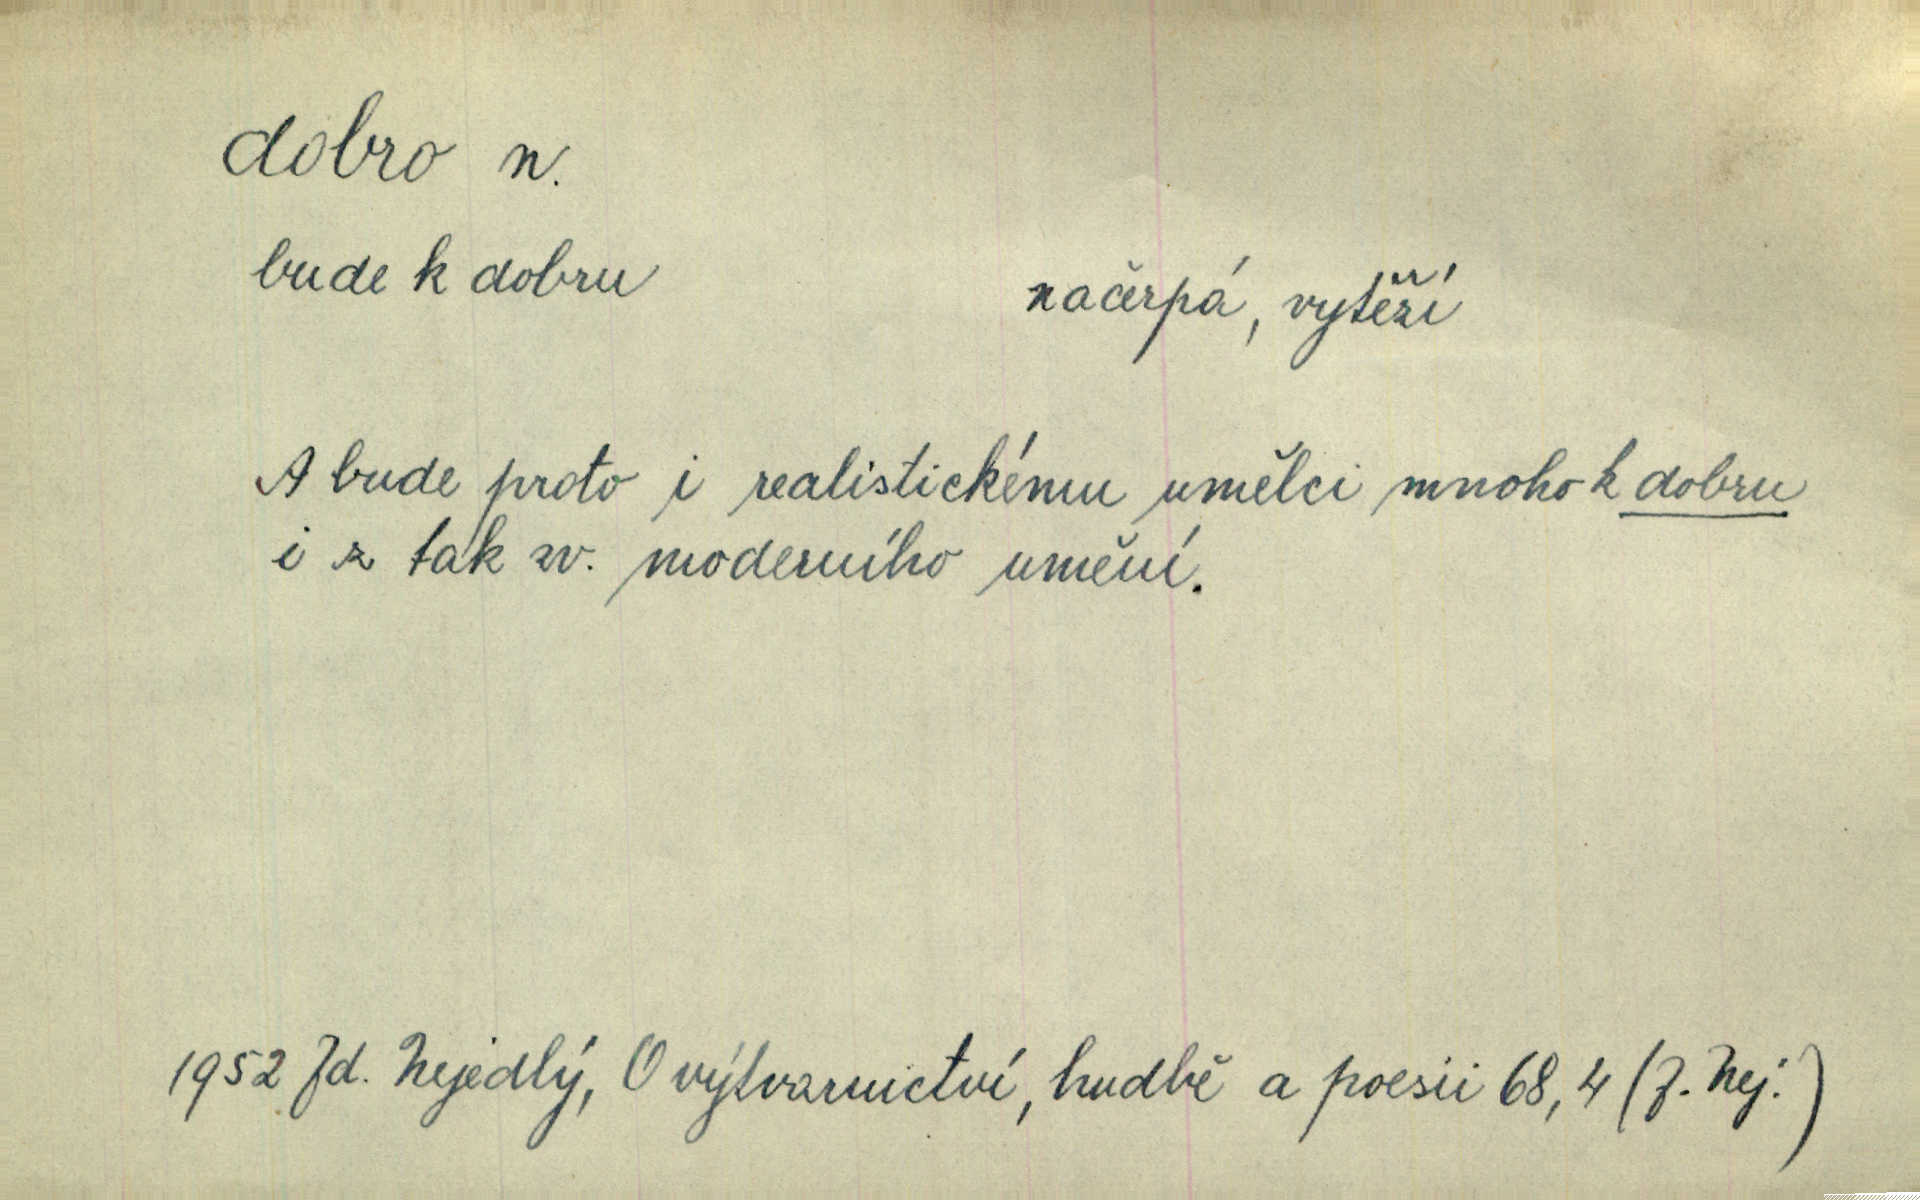 dobro n.
bude k dobru
načerpá, vytěží
A bude proto i realistickému umělci mnoho k dobru
i z tak zv. moderního umění.
1952 Zd. Nejedlý, O výtvarnictví, hudbě a poesii 68, 4 (Z. Nej.)